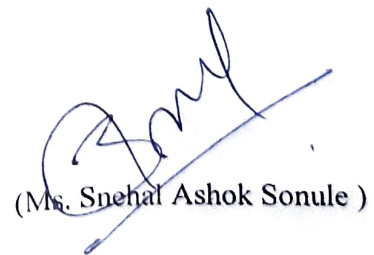 (Ms. Snehal Ashok Sonule )